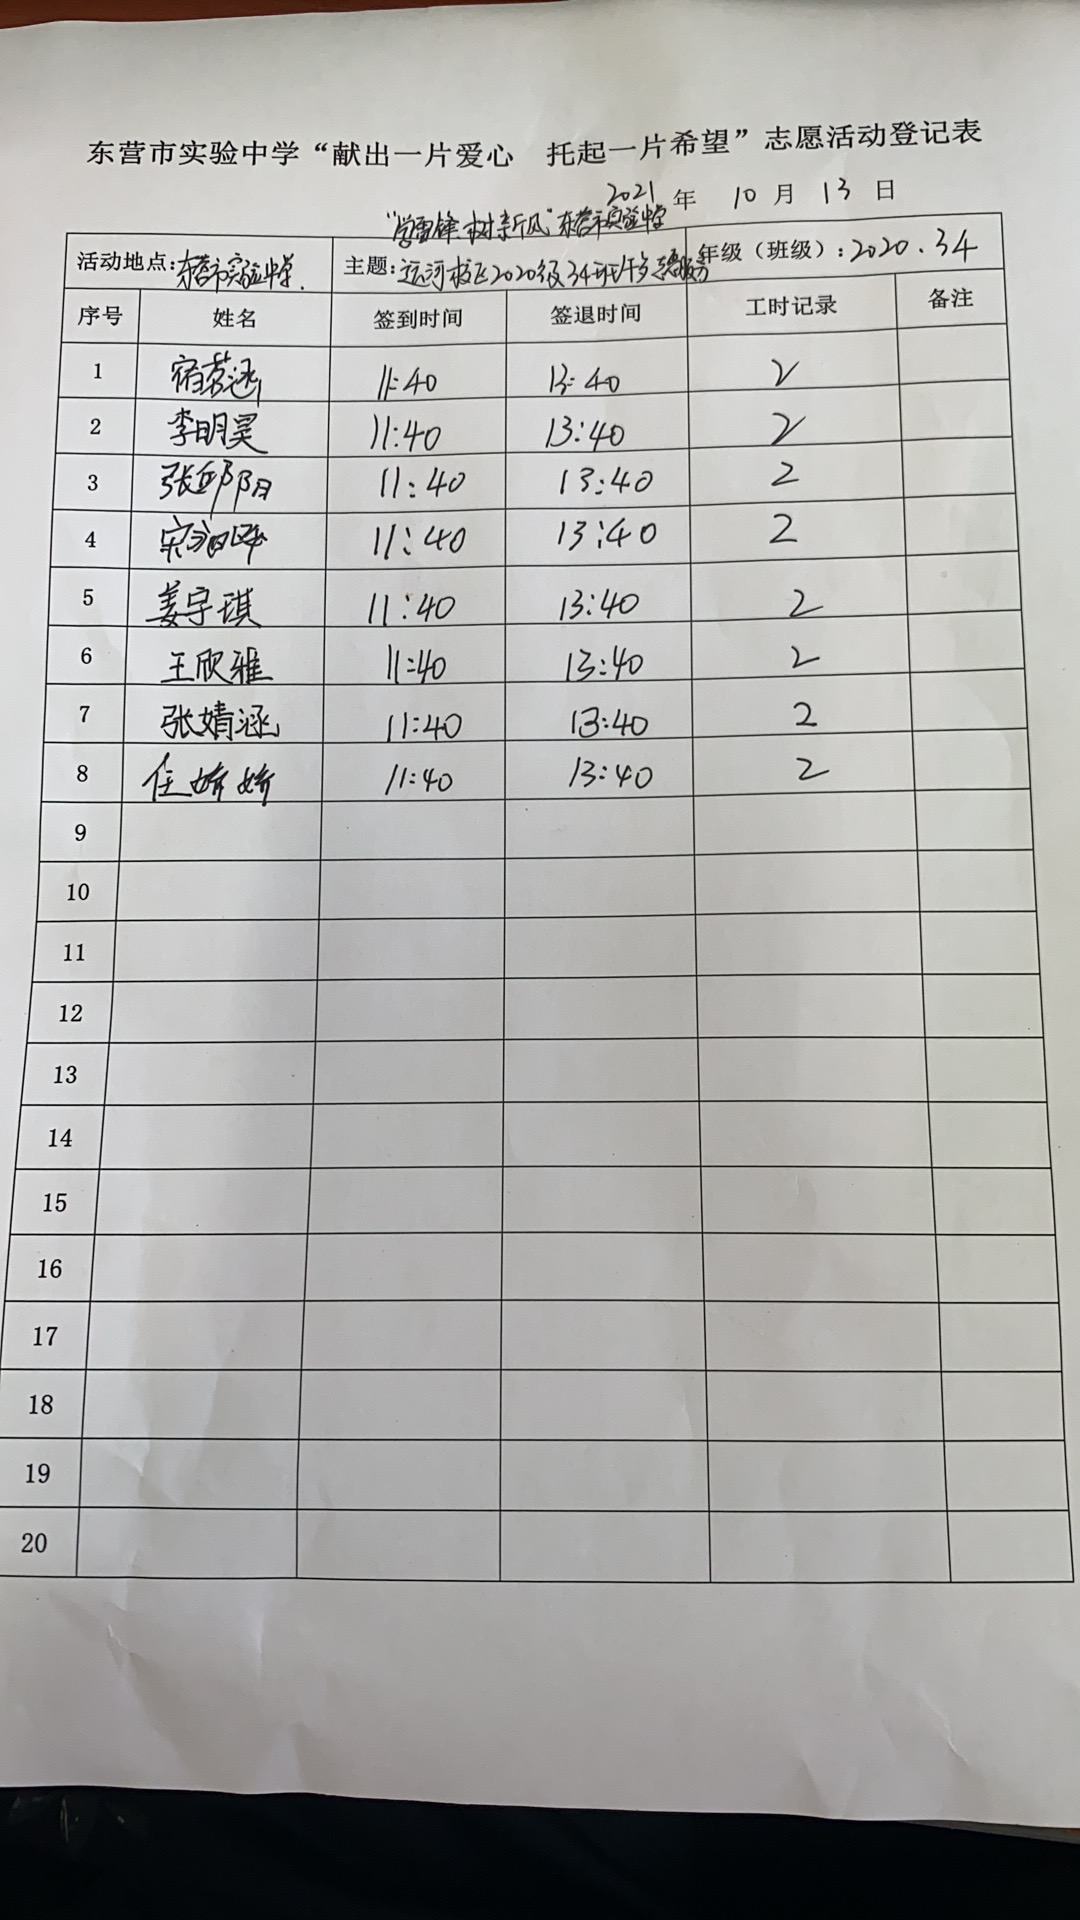 东营市实验中学“献出一片爱心 托起一片希望”志愿活动登记表
2021 年 10 月 13 日
“学雷锋 树新风”东营市实验中学
活动地点:东营市实验中学. 主题:运河校区2020级34班 年级（班级）:2020.34
序号 姓名 签到时间 签退时间 工时记录 备注
1 宿若涵 11:40 13:40 2
2 李明昊 11:40 13:40 2
3 张邱阳 11:40 13:40 2
4 宋 11:40 13:40 2
5 姜宇琪 11:40 13:40 2
6 王欣雅 11:40 13:40 2
7 张婧涵 11:40 13:40 2
8 任娇娇 11:40 13:40 2
9
10
11
12
13
14
15
16
17
18
19
20